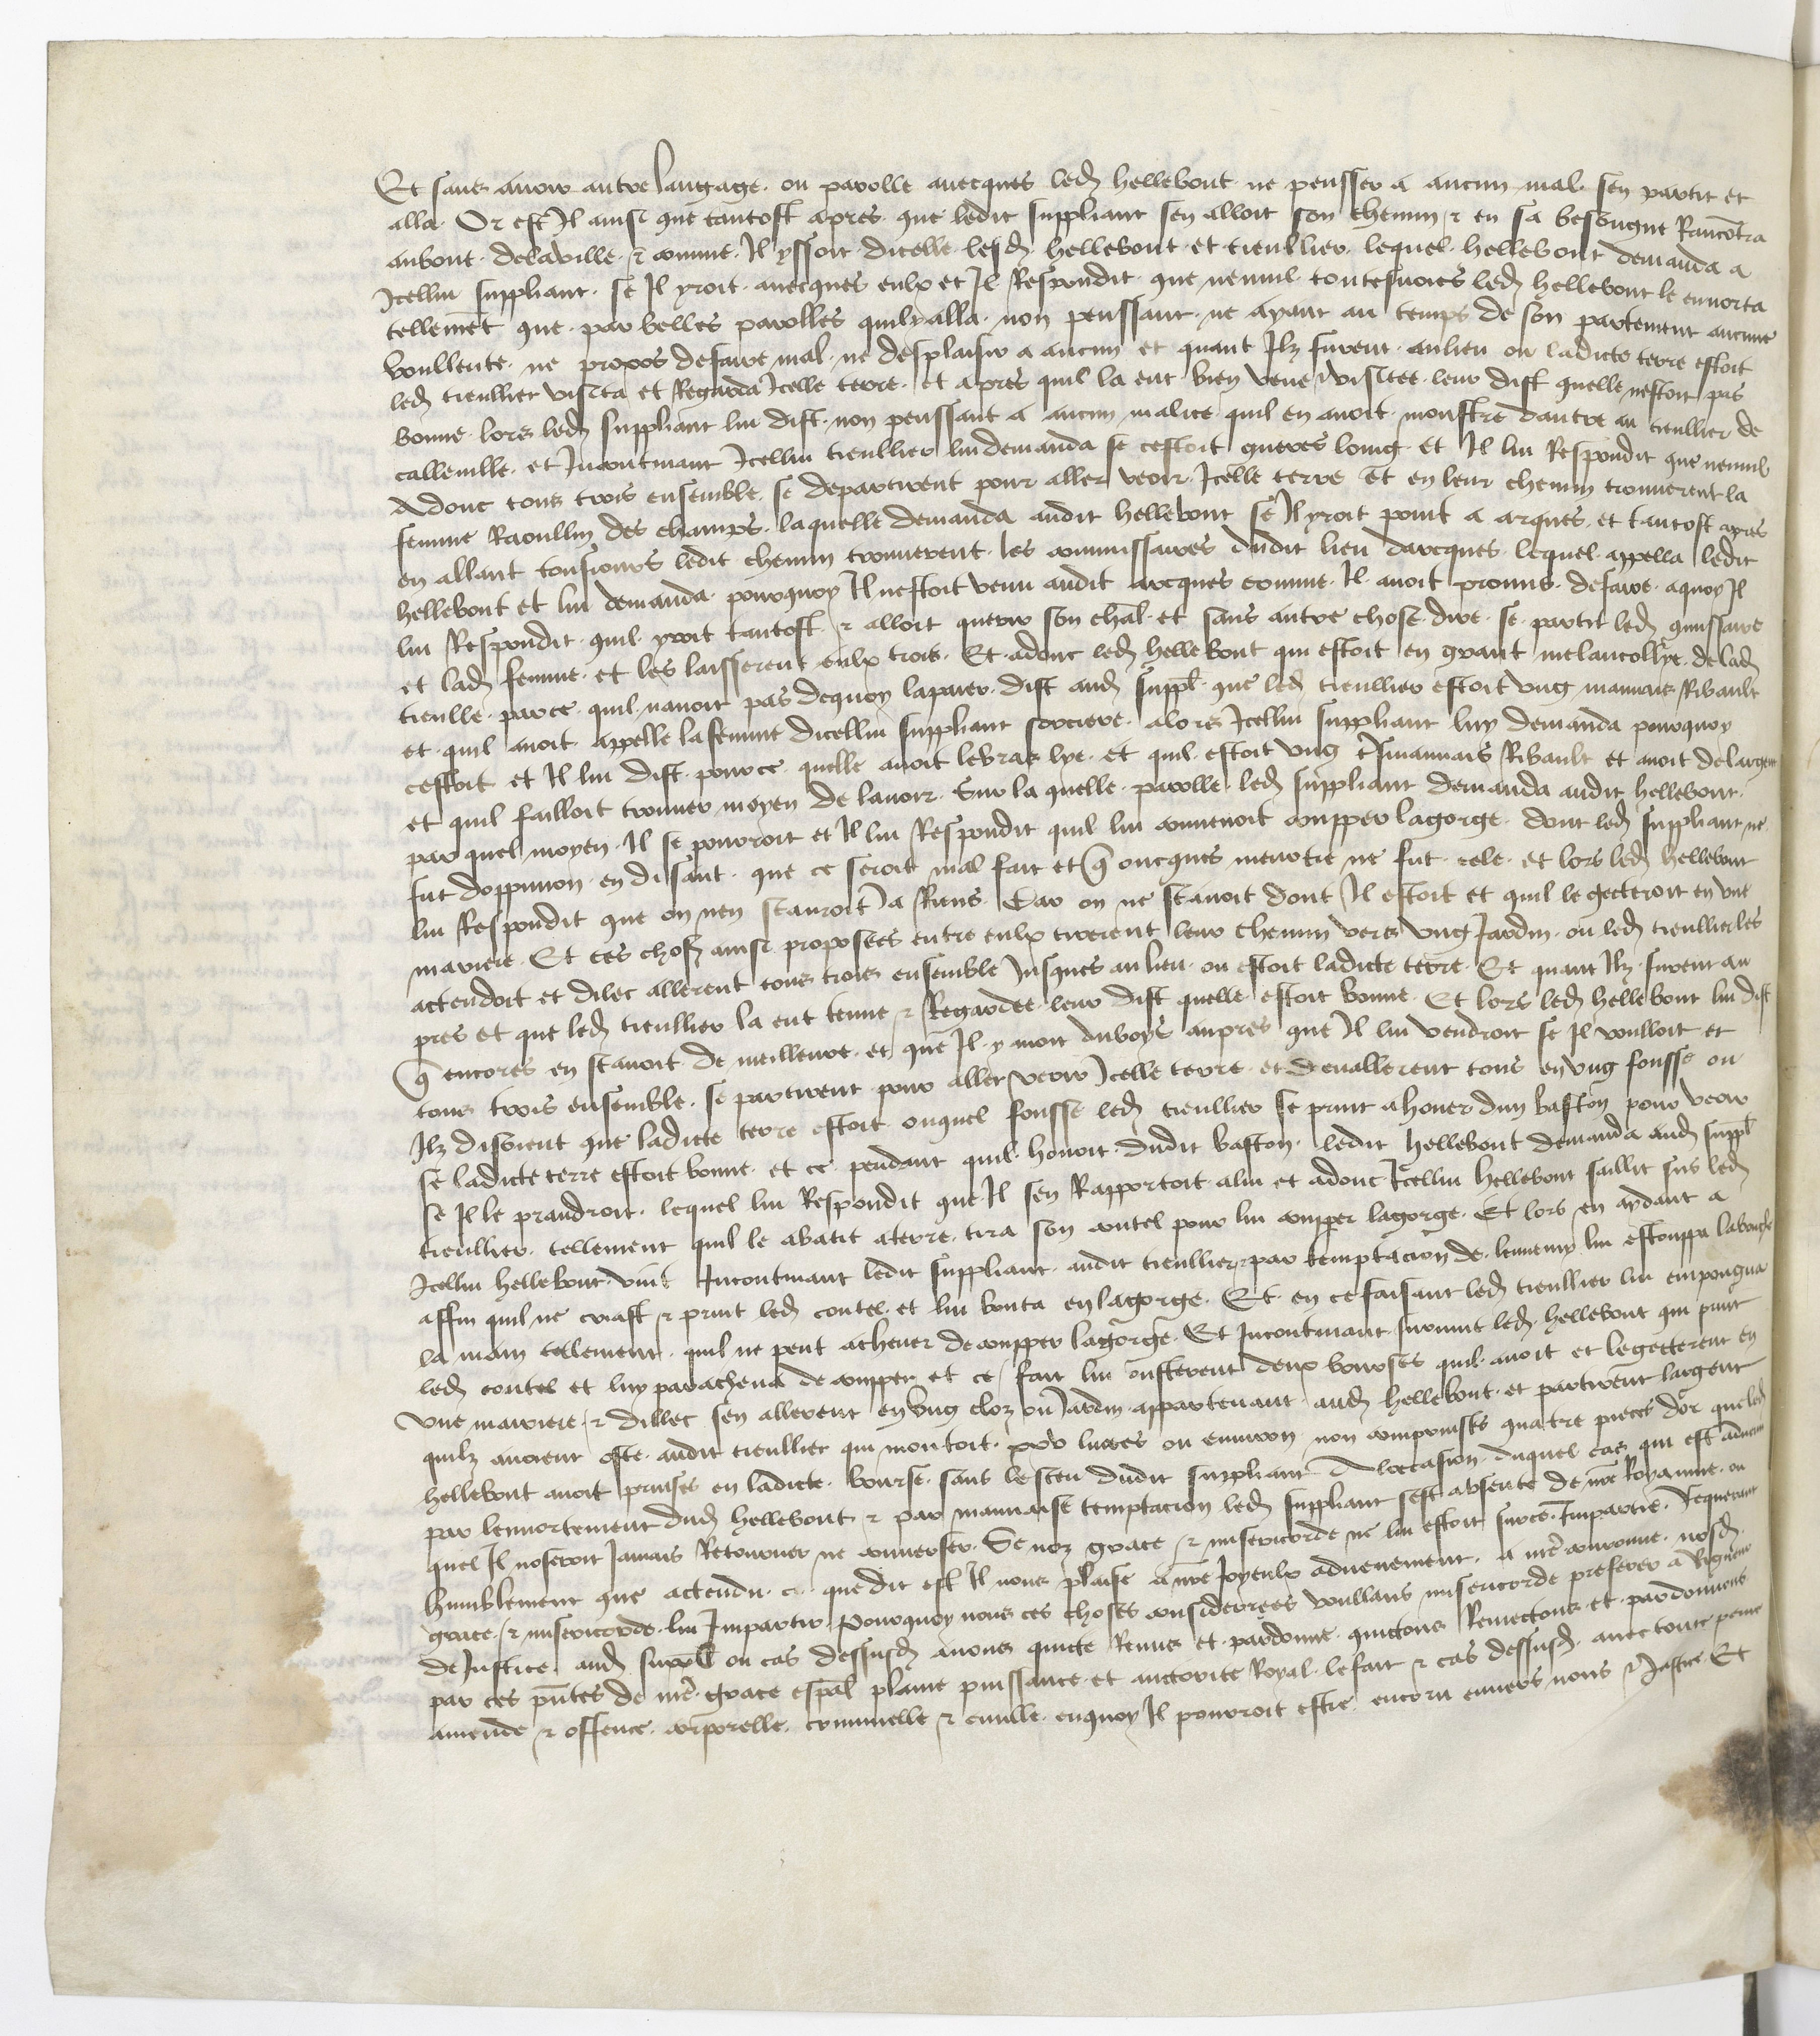 Et sans avoir autre langage ou parolle avecques led hellebout ne pensser a aucun mal sen partit et
alla Or est Il ainsi que tantost apres que ledit suppliant sen alloit son chemin & en sa besongne Rancontra
aubout delaville & comme Il yssoit dicelle lesd hellebout et tieullier lequel hellebout demanda a
Icellui suppliant se Il yroit avecques eulx et Il Respondit que nennil toutesuoies led hellebout le ennorta
tellement que par belles parolles quil y alla non penssant ne ayant au temps de son partement aucune
voullente ne propos defaire mal ne desplaisir a aucun et quant Ilz furent aulieu ou ladicte terre estoit
led tieullier visita et Regarda Icelle terre et apres quil la eut bien veue & visitee leur dist quelle nestoit pas
bonne lors led suppliant lui dist non penssant a aucun malice quil en avoit monstre dautre au tieullier de
calleville et Incontinant Icellui tieullier lui demanda se cestoit gueres loing et Il lui Respondit que nennil
Adonc tous trois ensemble se departirent pour aller veoir Icelle terre Et en leur chemin trouverent la
femme Raoullin des champs laquelle demanda audit hellebout se Il yroit point a arques et tantost apres
en allant tousiours ledit chemin trouverent les commissaires dudit lieu darcques lequel appella ledit
hellebout et lui demanda pourquoy Il nestoit venu audit arcques comme Il avoit promis defaire aquoy Il
lui Respondit quil yroit tantost & alloit querir son chal et sans autre chose dire se partit led commissaire
et lad femme et les laisserent eulx trois Et adonc led hellebout qui estoit en grant melancollye delad
tieulle parce quil navoit pas dequoy lapaier dist aud suppl que led tieullier estoit ung mauvais Ribault
et quil avoit appelle lafemme dicellui suppliant sorciere alors Icellui suppliant luy demanda pourquoy
cestoit et Il lui dist pource quelle avoit lebras lye et quil estoit ung tresmauvais Ribault et avoit delargent
et quil failloit trouver moyen de lavoir Sur la quelle parolle led suppliant demanda audit hellebout
par quel moyen Il se pourroit et Il lui Respondit quil lui convenoit coupper lagorge dont led suppliant ne
fut doppinion en disant que ce seroit mal fait et q oncques meurtre ne fut cele et lors led hellebout
lui Respondit que on nen scauroit Ia Riens Car on ne scavoit dont Il estoit et quil le gecteroit en une
mariere Et ces chos ainsi proposees entre eulx tirerent leur chemin vers ung Jardin ou led tieullier les
actendoit et dilec allerent tous trois ensemble Jusques au lieu ou estoit ladicte terre Et quant Ilz furent au
pres et que led tieullier la eut tenue & Regardee leur dist quelle estoit bonne Et lors led hellebout lui dist
q encores en scavoit de meilleure et que Il y avoit duboys aupres que Il lui vendroit se Il voulloit et
tous trois ensemble se partirent pour aller veoir Icelle terre et devallerent tous en ung fousse ou
Ilz disoient que ladicte terre estoit ouquel fousse led tieullier se print a houer dun baston pour veoir
se ladicte terre estoit bonne et ce pendant quil houoit dudit baston ledit hellebout demanda aud suppl
se Il le prandroit lequel lui Respondit que Il sen Rapportoit alui et adonc Icellui hellebout saillit sus led
tieullier tellement quil le abatit aterre tira son coutel pour lui coupper lagorge Et lors en aydant a
Icellui hellebout vint Incontinant ledit suppliant audit tieullier & par temptacion de lennemy lui estouppa labouche
affin quil ne criast & print led coutel et lui bouta enlagorge Et en ce faisant led tieullier lui empongna
la main tellement quil ne peut achever de coupper lagorge Et Incontinant survint led hellebout qui print
led coutel et luy parachena de coupper et ce fait lui ousterent deux bourses quil avoit et legecterent en
une mariere & dillec sen allerent en ung cloz ou Jardin appartenant aud hellebout et partirent largent
quilz avoient oste audit tieullier qui montoit xxv livres ou environ non comprinses quatre pieces dor que led
hellebout avoit prinses en ladicte bourse sans lesceu dudit suppliant A loccasion duquel cas qui est advenu
par lennortement dud hellebout & par mauvaise temptacion led suppliant sest absente de nre Royaume ou
quel Il noseroit Jamais Retourner ne converser Se noz grace & misericorde ne lui estoit surce Impartie Requerant
humblement que actendu ce que dit est Il nous plaise a nre Joyeulx advenement a nre couronne nosd
grace & misericorde lui Impartir Pourquoy nous ces choses considerees voullans misericorde preferer a Rigueur
deJustice aud suppl ou cas dessusd avons quicte Remis et pardonne quictons Remectons et pardonnons
par ces pntes de nre grace espal plaine puissance et auctorite Royal lefait & cas dessusd avec toute peine
amende & offence corporelle criminelle & civille enquoy Il pourroit estre encoru envers nous & Justice Et